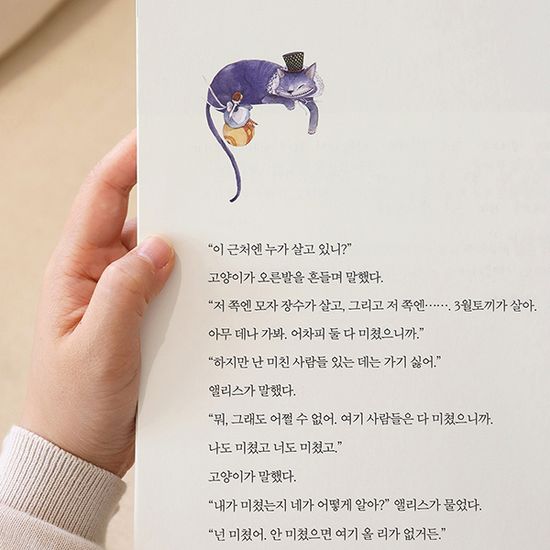 “이 근처엔 누가 살고 있니?”
고양이가 오른발을 흔들며 말했다.
“저 쪽엔 모자 장수가 살고, 그리고 저 쪽엔……. 3월토끼가 살아.
아무 데나 가봐. 어차피 둘 다 미쳤으니까.”
“하지만 난 미친 사람들 있는 데는 가기 싫어.”
앨리스가 말했다.
“뭐, 그래도 어쩔 수 없어. 여기 사람들은 다 미쳤으니까.
나도 미쳤고 너도 미쳤고.”
고양이가 말했다.
“내가 미쳤는지 네가 어떻게 알아?” 앨리스가 물었다.
“넌 미쳤어. 안 미쳤으면 여기 올 리가 없거든.”